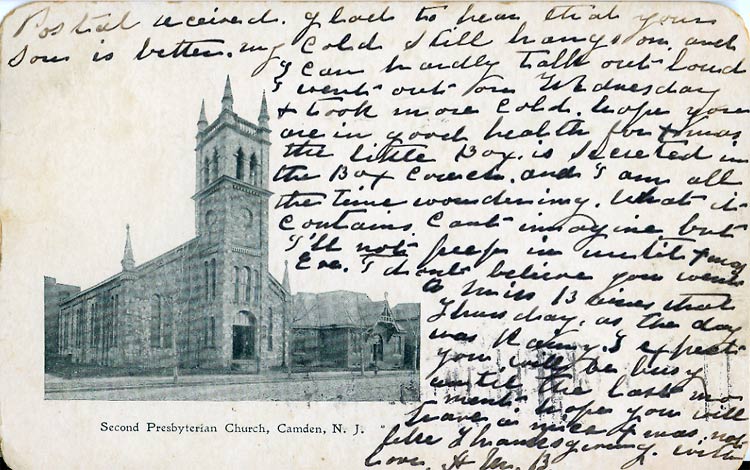 Postal received. glad to hear that your
son is better. my cold still hangs on and
I can hardly talk out loud
I went out on Wednesday
& took more cold. hope you
are in good health for Xmas
the little Box is secreted in
the Box Couch. and I am all
the time wondering. What it
contains. Cant imagine but
I'll not peep in until Xmas
Eve. I don't believe you went
to miss B ines that
Thursday. as the day
was Rainy. I expect
you will be busy
until the last mo
ment. hope you will
have a nice Xmas. not
like Thanksgiving. with
love. H B
Second Presbyterian Church, Camden, N. J.